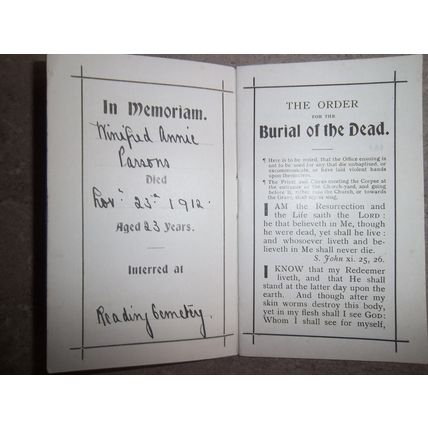 In Memoriam.
Winifred Annie
Parsons
Died
Nov. 23rd 1912.
Aged 23 Years.
Interred at
Reading Cemetery.
THE ORDER
FOR THE
Burial of the Dead.
¶ Here is to be noted, that the Office ensuing is
not to be used for any that die unbaptised, or
excommunicate, or have laid violent hands
upon themselves.
¶ The Priest and Clerks meeting the Corpse at
the entrance of the Church-yard, and going
before it, either into the Church, or towards
the Grave, shall say or sing,
I AM the Resurrection and
the Life saith the LORD:
he that believeth in Me, though
he were dead, yet shall he live:
and whosoever liveth and be-
lieveth in Me shall never die.
S. John xi. 25, 26.
I KNOW that my Redeemer
liveth, and that He shall
stand at the latter day upon the
earth. And though after my
skin worms destroy this body,
yet in my flesh shall I see GOD:
Whom I shall see for myself,